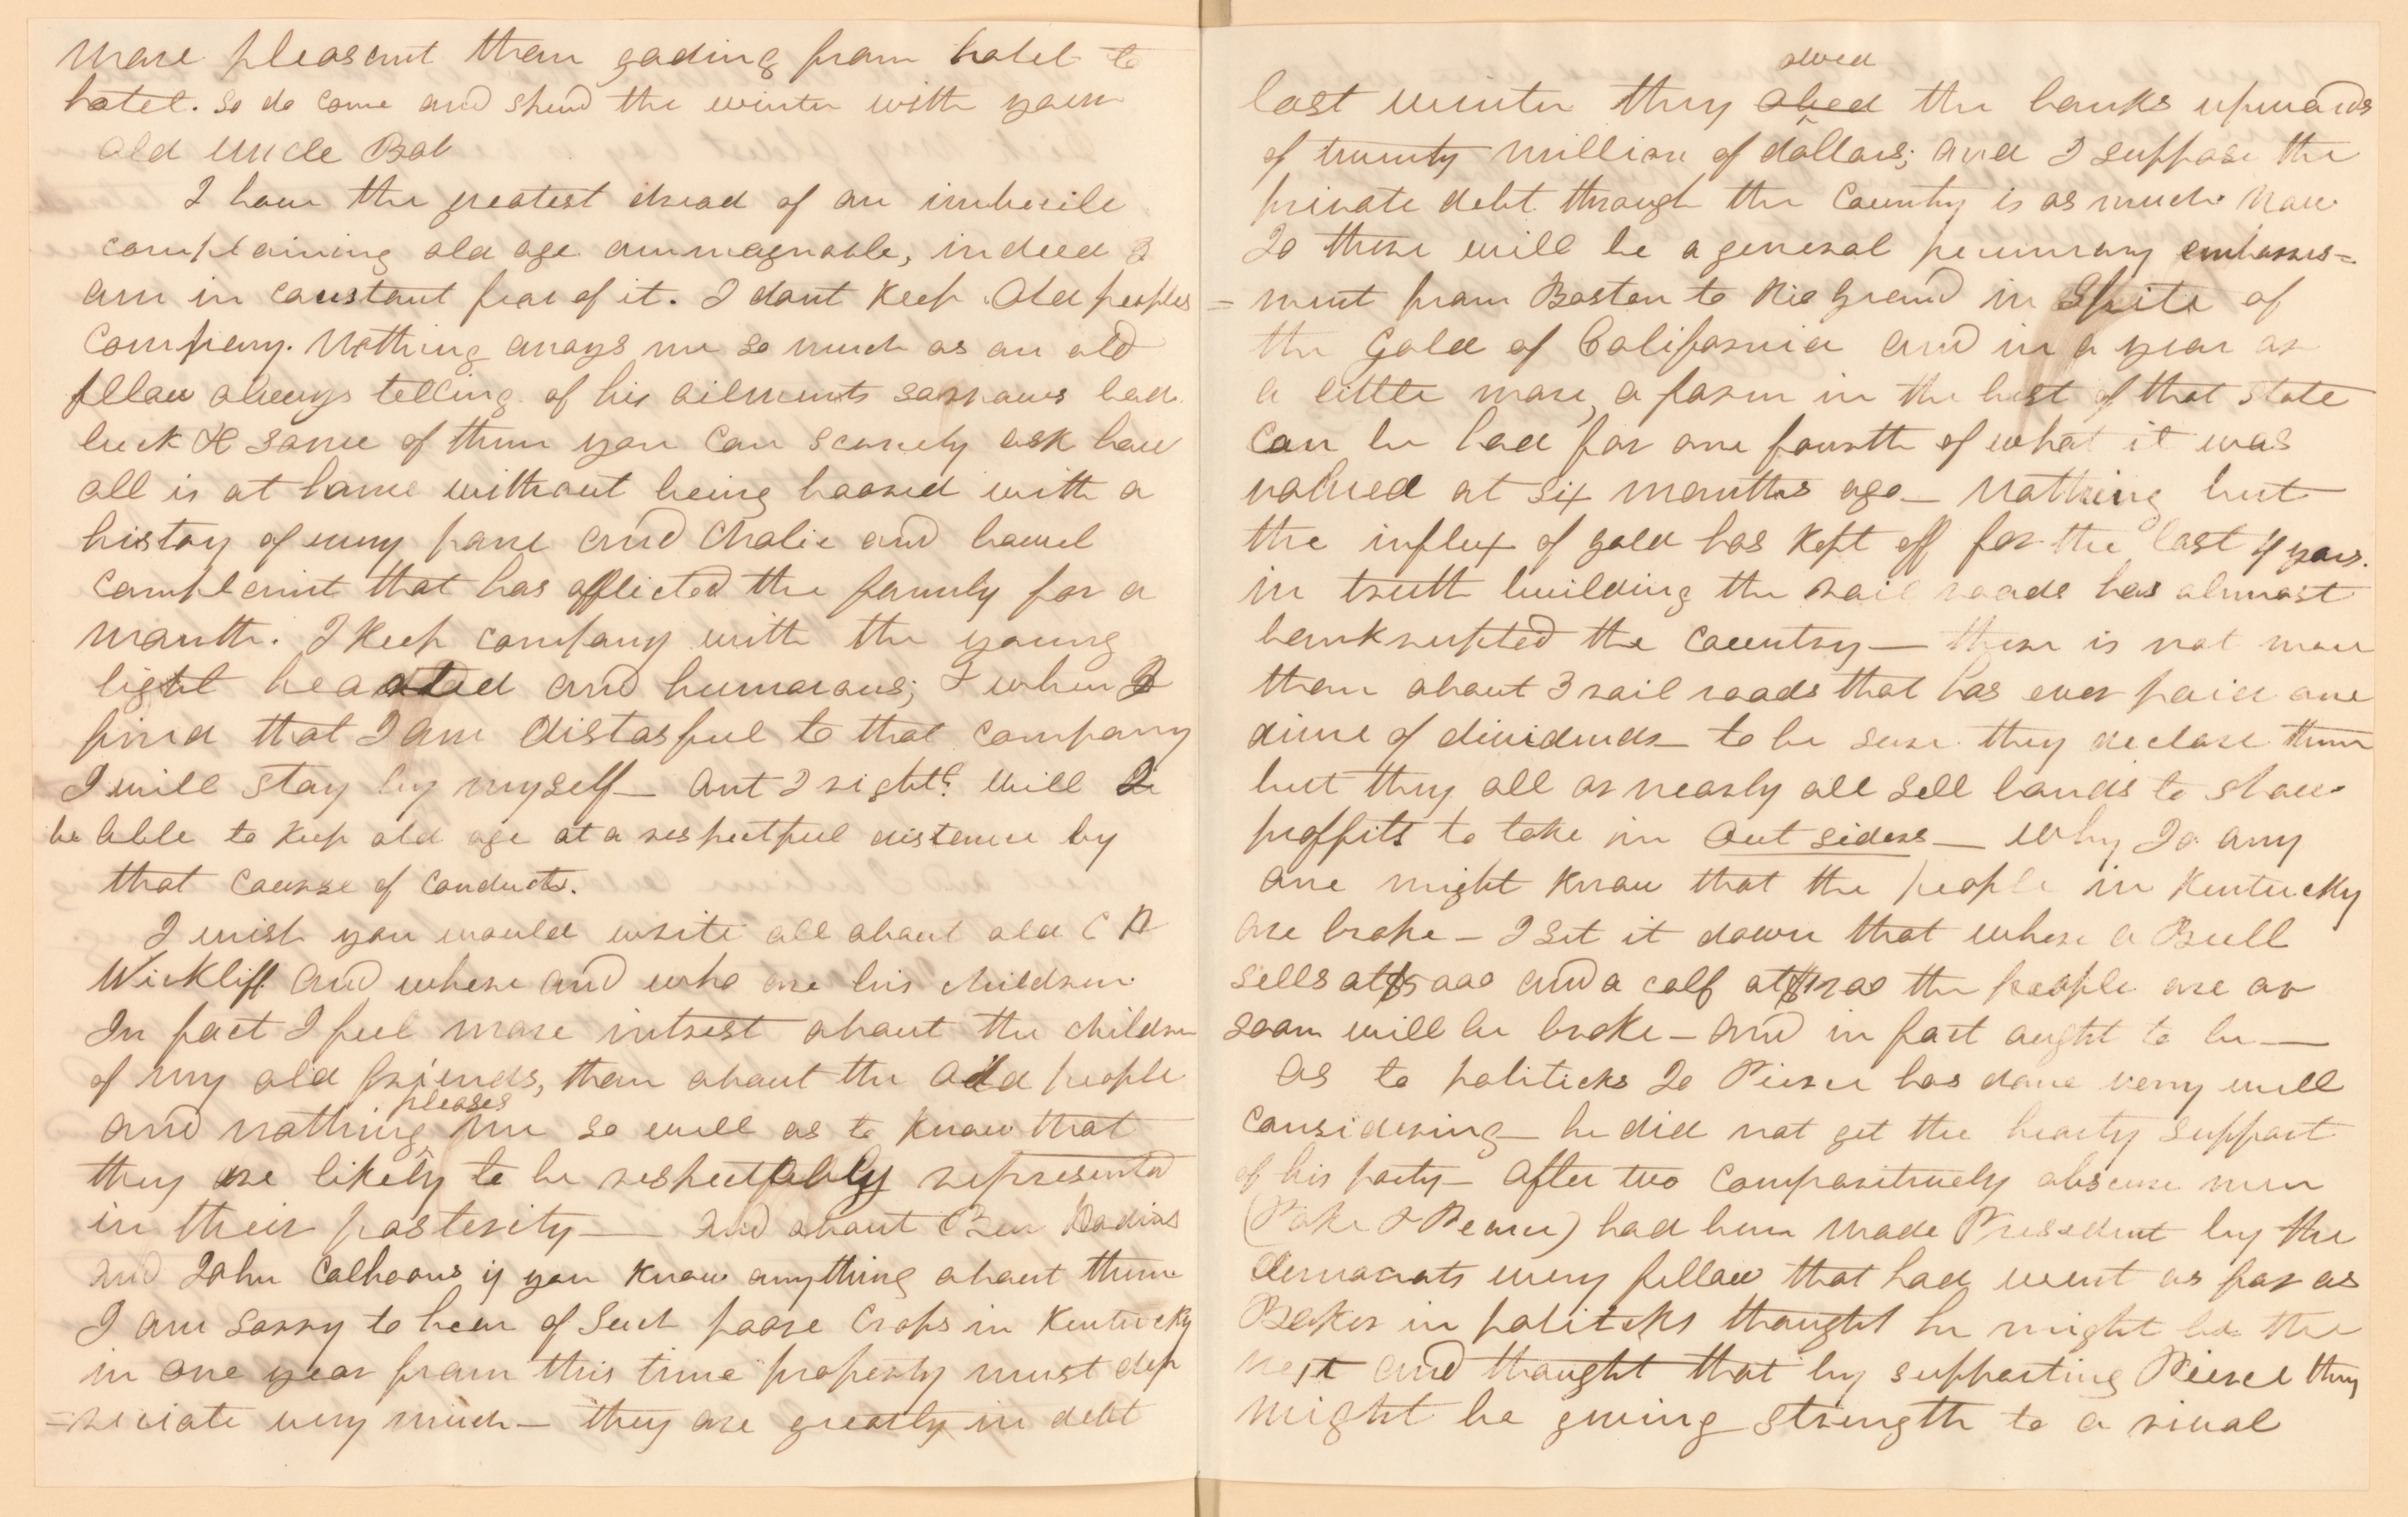 more pleasant than gading from hotel to
hotel. So do come and spend the winter with your
old uncle Bob
I have the greatest dread of an imbecile
complaining old age ammagnable, indeed I
am in constant fear of it. I dont keep old peoples
company. Nothing anoys me so much as an old
fellow always telling of his ailments sorrows bad
luck &c some of them you can scarcely ask how
all is at home without being boored with a
history of every pane and Cholic and bowel
complaint that has afflicted the family for a
month. I keep company with the young
light hearted and humorous; & when I
find that I am distasful to that company
I will stay by myself — ant I right? Will I
be able to keep old age at a respectful distance by
that course of conduct.
I wish you would write all about old C A
Wickliff and where and who are his children
In fact I feel more intrest about the children
of my old friends, than about the old people
pleases
and nothing me so well as to know that
they are likely to be respectfably represented
in their posterity — and about Ben Hardins
and John Calhoons if you know anything about them
I am sorry to hear of such poore crops in Kentucky
in one year from this time property must dep
=reciate very much — they are greatly in debt
owed
last winter they owed the banks upwards
of twenty million of dollars; and I suppose the
private debt through the country is as much now
So there will be a general pecunary embarras=
=ment from Boston to Rio Grand in Spite of
the Gold of California and in a year or
a little more, a farm in the best of that state
can be had for one fourth of what it was
valued at six months ago — nothing but
the influx of gold has kept off for the last 4 years.
in truth building the rail roads has almost
bankrupted the country — there is not more
than about 3 rail roads that has ever paid one
dime of dividends — to be sure they declare them
but they all or nearly all sell bonds to show
proffits to take in out siders — Why Jo any
one might know that the people in Kentucky
are broke — I set it down that where a Bull
sells at $5000 and a calf at the people are or
soon will be broke — and in fact aught to be —
As to politicks Jo Pierce has done very well
considering — he did not get the hearty support
of his party — After two comparitively obscure men
(Poke & Pearce) had been made President by the
democrats every fellow that had went as far as
Beker in politicks thought he might be the
next and thought that by supporting Pierce they
might be giving strength to a rival